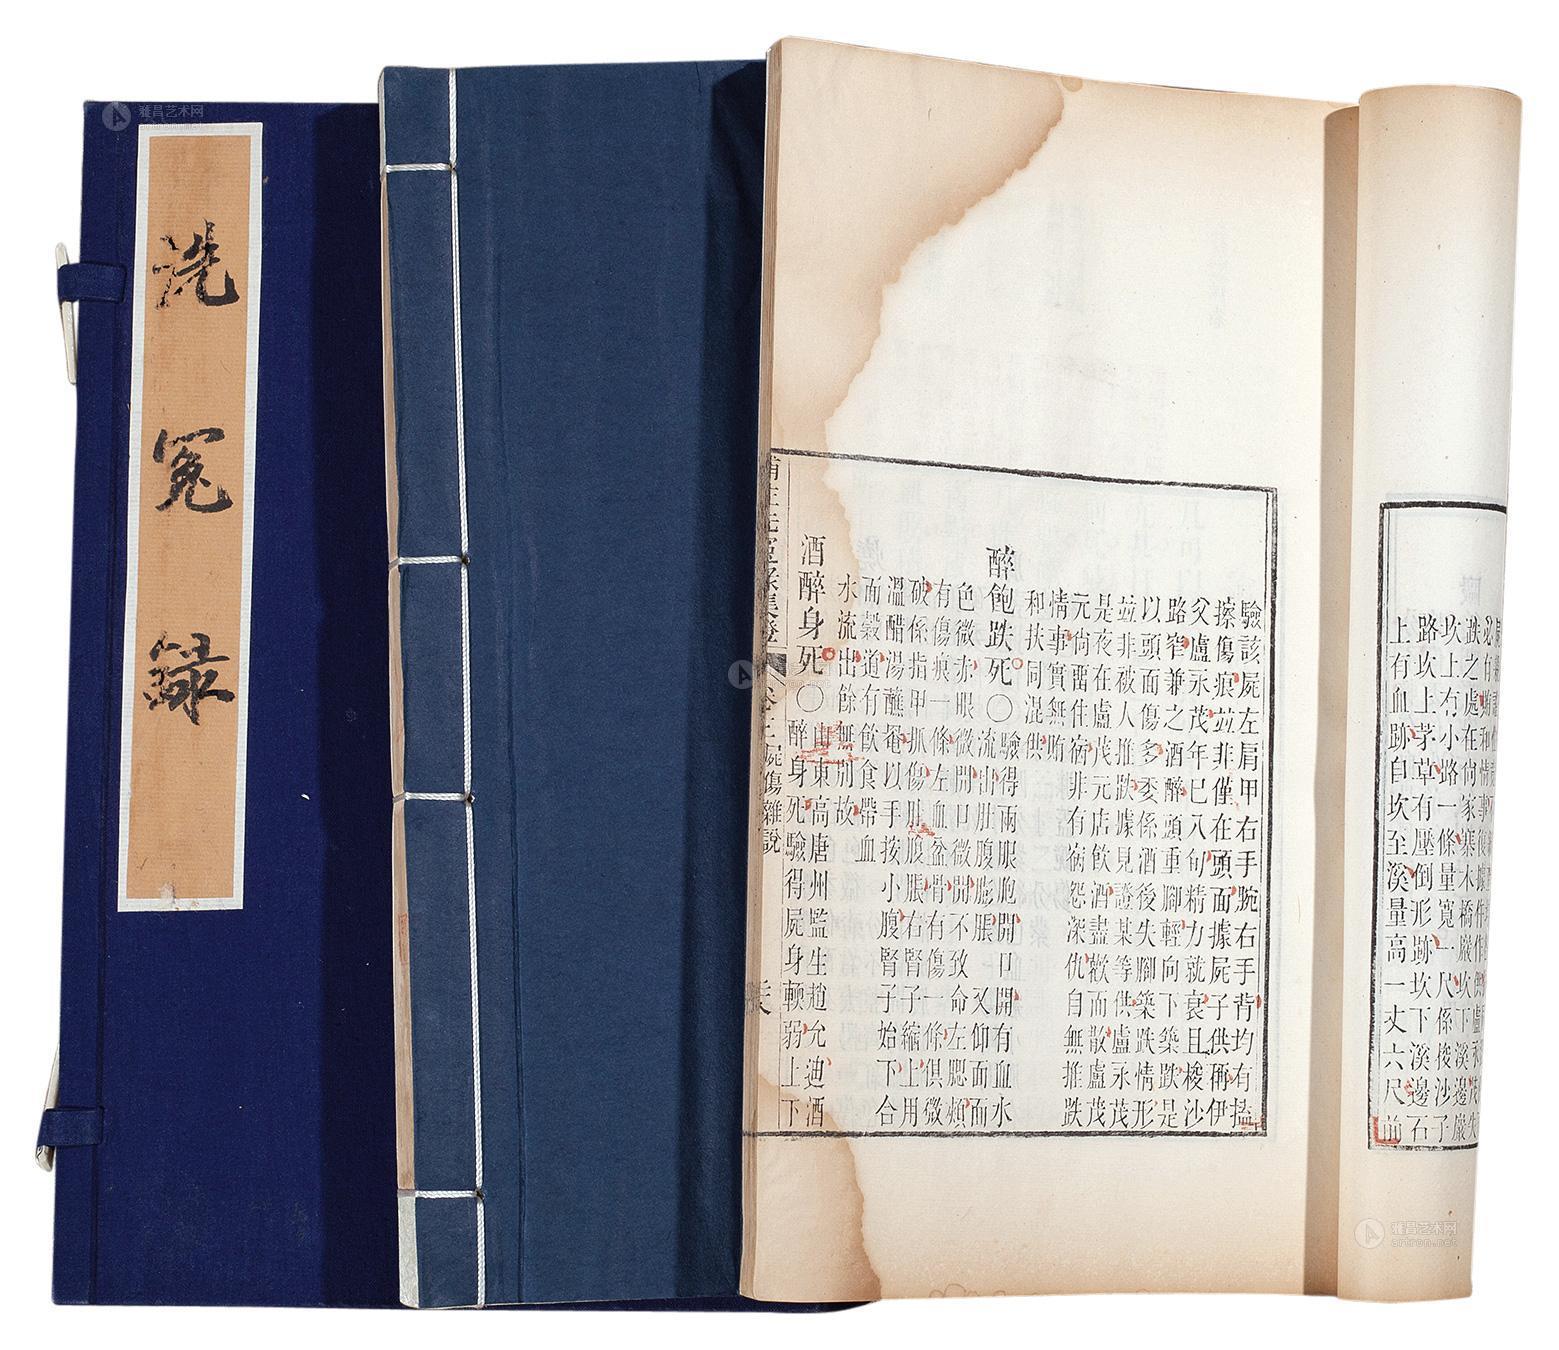 洗冤錄
驗該屍左肩甲右手腕右手背均有搕
擦傷痕並非僅在頭面據屍子供稱伊
父盧永茂年已八旬精力就衰且梭沙
路窄兼之酒醉頭重腳輕向下築跌是
以頭面傷多委係酒後失腳築跌情形
並非被人推跌據見證某等供盧永茂
是夜在盧茂元店飲酒盡歡而散盧茂
元尙畱住宿非有宿怨深仇自無推跌
情事實無賄
和扶同混供
醉飽跌死〇驗得兩眼胞開口開有血水
流出肚腹膨脹 又仰面面
色微赤眼微開口微開不致命左腮頰
有傷痕一條左血盆骨有傷一條俱微
破係指甲抓傷肚腹脹右腎子縮上用
溫醋湯蘸罨以手按小腹腎子始下合
面穀道有飲食帶血
水流出餘無別故
酒醉身死〇山東高唐州監生趙允迪酒
醉身死驗得屍身頓弱上下
卷三屍傷雜說
坎上有小路一條量寬一尺係俊沙子
路坎上茅草有壓倒形跡坎下溪邊石
上有血跡自坎至溪量高一丈六尺前
雅昌艺术网
artron.net